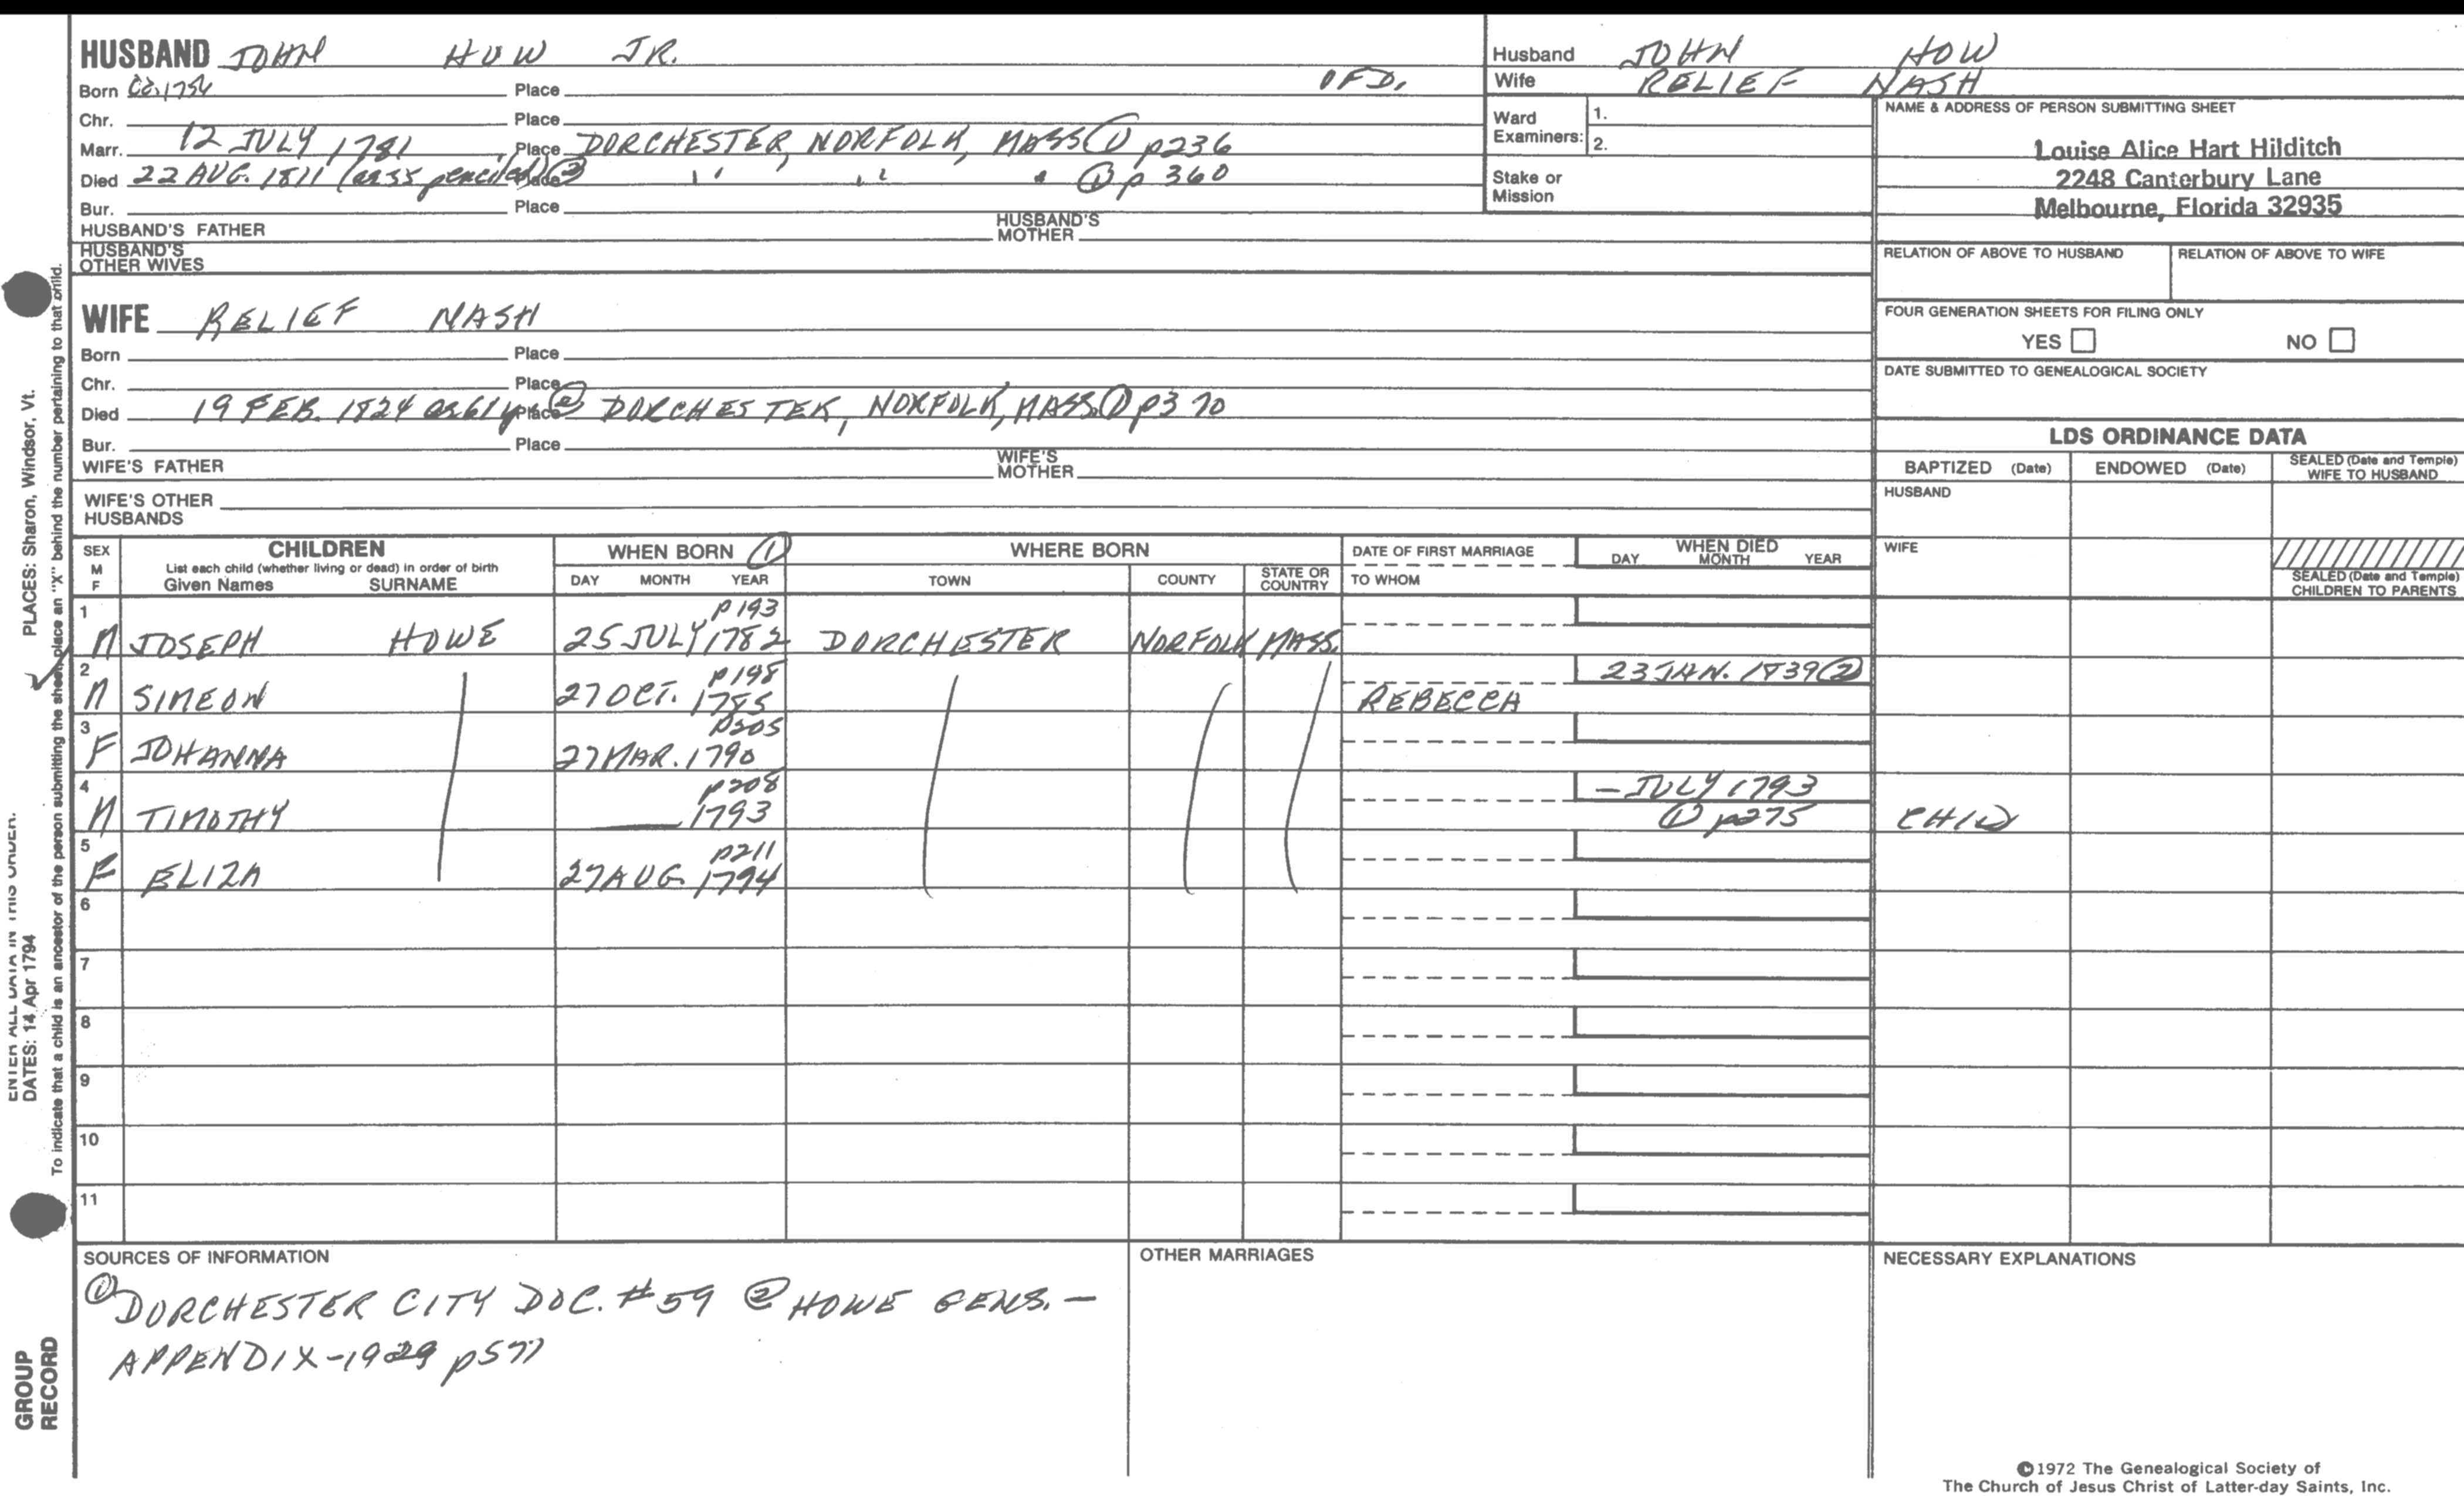 HUSBAND JOHN HOW JR.
Born Ca. 1756 Place OFD.
Chr. Place
Marr. 12 JULY 1781 Place DORCHESTER, NORFOLK, MASS ① p236
Died 22 AUG. 1811 (ae 55 penciled) ② Place " " " ① p 360
Bur. Place
HUSBAND'S FATHER HUSBAND'S MOTHER
HUSBAND'S OTHER WIVES
Husband JOHN HOW
Wife RELIEF NASH
Ward Examiners: 1.
2.
Stake or Mission
NAME & ADDRESS OF PERSON SUBMITTING SHEET
Louise Alice Hart Hilditch
2248 Canterbury Lane
Melbourne, Florida 32935
RELATION OF ABOVE TO HUSBAND RELATION OF ABOVE TO WIFE
WIFE RELIEF NASH
Born Place
Chr. Place
Died 19 FEB. 1824 ae 61 y ② Place DORCHESTER, NORFOLK, MASS. ① p370
Bur. Place
WIFE'S FATHER WIFE'S MOTHER
WIFE'S OTHER HUSBANDS
FOUR GENERATION SHEETS FOR FILING ONLY
YES NO
DATE SUBMITTED TO GENEALOGICAL SOCIETY
LDS ORDINANCE DATA
BAPTIZED (Date) ENDOWED (Date) SEALED (Date and Temple) WIFE TO HUSBAND
HUSBAND
WIFE
SEALED (Date and Temple) CHILDREN TO PARENTS
SEX M F
CHILDREN
List each child (whether living or dead) in order of birth
Given Names SURNAME
WHEN BORN ①
DAY MONTH YEAR
WHERE BORN
TOWN COUNTY STATE OR COUNTRY
DATE OF FIRST MARRIAGE
TO WHOM
WHEN DIED
DAY MONTH YEAR
1 p193
M JOSEPH HOWE 25 JULY 1782 DORCHESTER NORFOLK MASS.
2 p198 23 JAN. 1839 ②
M SIMEON 27 OCT. 1785 REBECCA
3 p205
F JOHANNA 27 MAR. 1790
4 p208 - JULY 1793
M TIMOTHY 1793 ① p275 CHILD
5 p211
F ELIZA 27 AUG. 1794
6
7
8
9
10
11
SOURCES OF INFORMATION
① DORCHESTER CITY DOC. #59 ② HOWE GENS. -
APPENDIX-1929 p577
OTHER MARRIAGES
NECESSARY EXPLANATIONS
©1972 The Genealogical Society of
The Church of Jesus Christ of Latter-day Saints, Inc.
GROUP
RECORD
ENTER ALL DATA IN THIS ORDER:
DATES: 14 Apr 1794
PLACES: Sharon, Windsor, Vt.
To indicate that a child is an ancestor of the person submitting the sheet, place an "X" behind the number pertaining to that child.